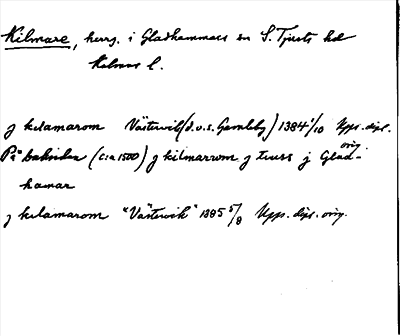 Kilmare, herrg. i Gladhammars sn S. Tjusts hd
Kelmar l.
j kelamarom Västervik (d.v.s. Gamleby) 1384 1/10 Upps. dipl. orig.
På baksidan (c:a 1500) j kilmarrom j tiuss j Glad-
hamar
j kelamarom "Västervik" 1395 5/8 Upps. dipl. orig.